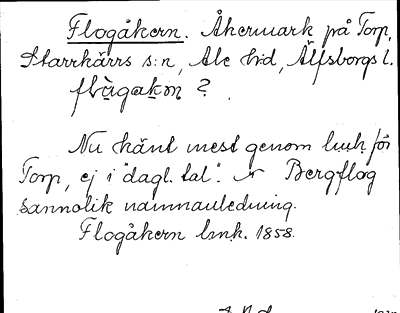 Flogåkern. Åkermark på Torp,
Starrkärrs s:n, Ale hd, Älfsborgs l.
flωgakɷn ?
Nu känt mest genom lmk för
Torp, ej i "dagl. tal".
Bergflog
sannolik namnavledning.
Flogåkern lmk. 1858.